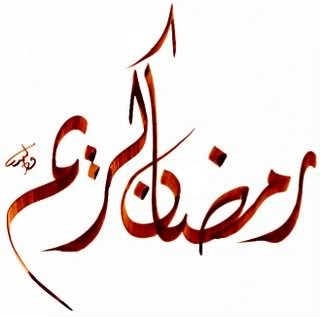 رمضان الكريم